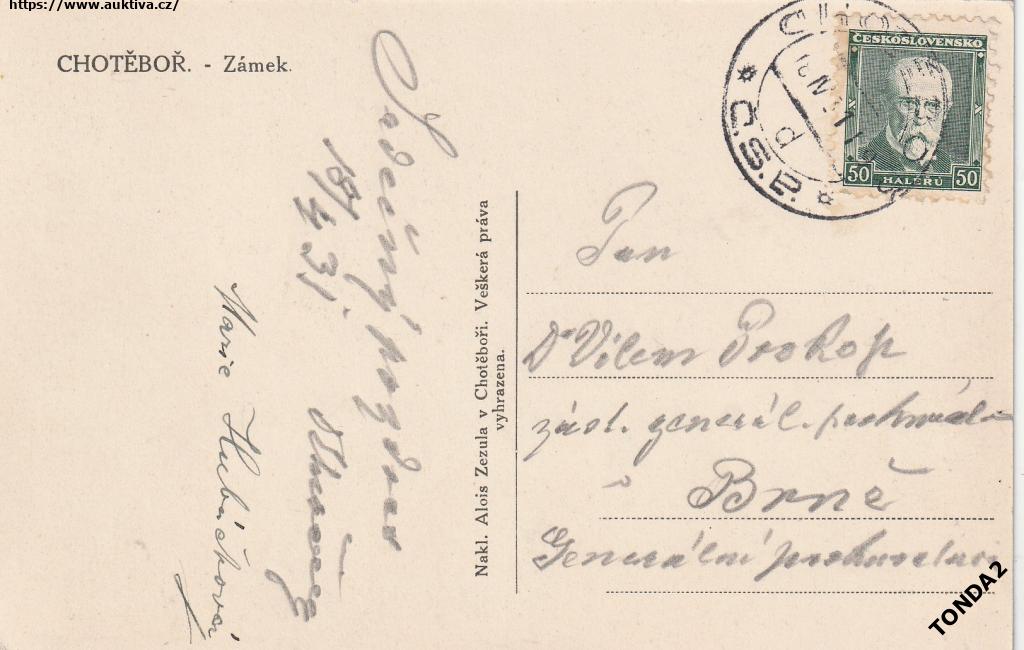 https://www.auktiva.cz/
CHOTĚBOŘ. - Zámek.
Srdečný pozdrav
18/4 31.
Marie Hubáčková
Nakl. Alois Zezula v Chotěboři. Veškerá práva
vyhrazena.
ČESKOSLOVENSKO
50 HALÉRŮ 50
Č.S.R.
Pan
Dr Vilem Prokop
zást. generál.
v Brně
Generální prokuratura
TONDA2